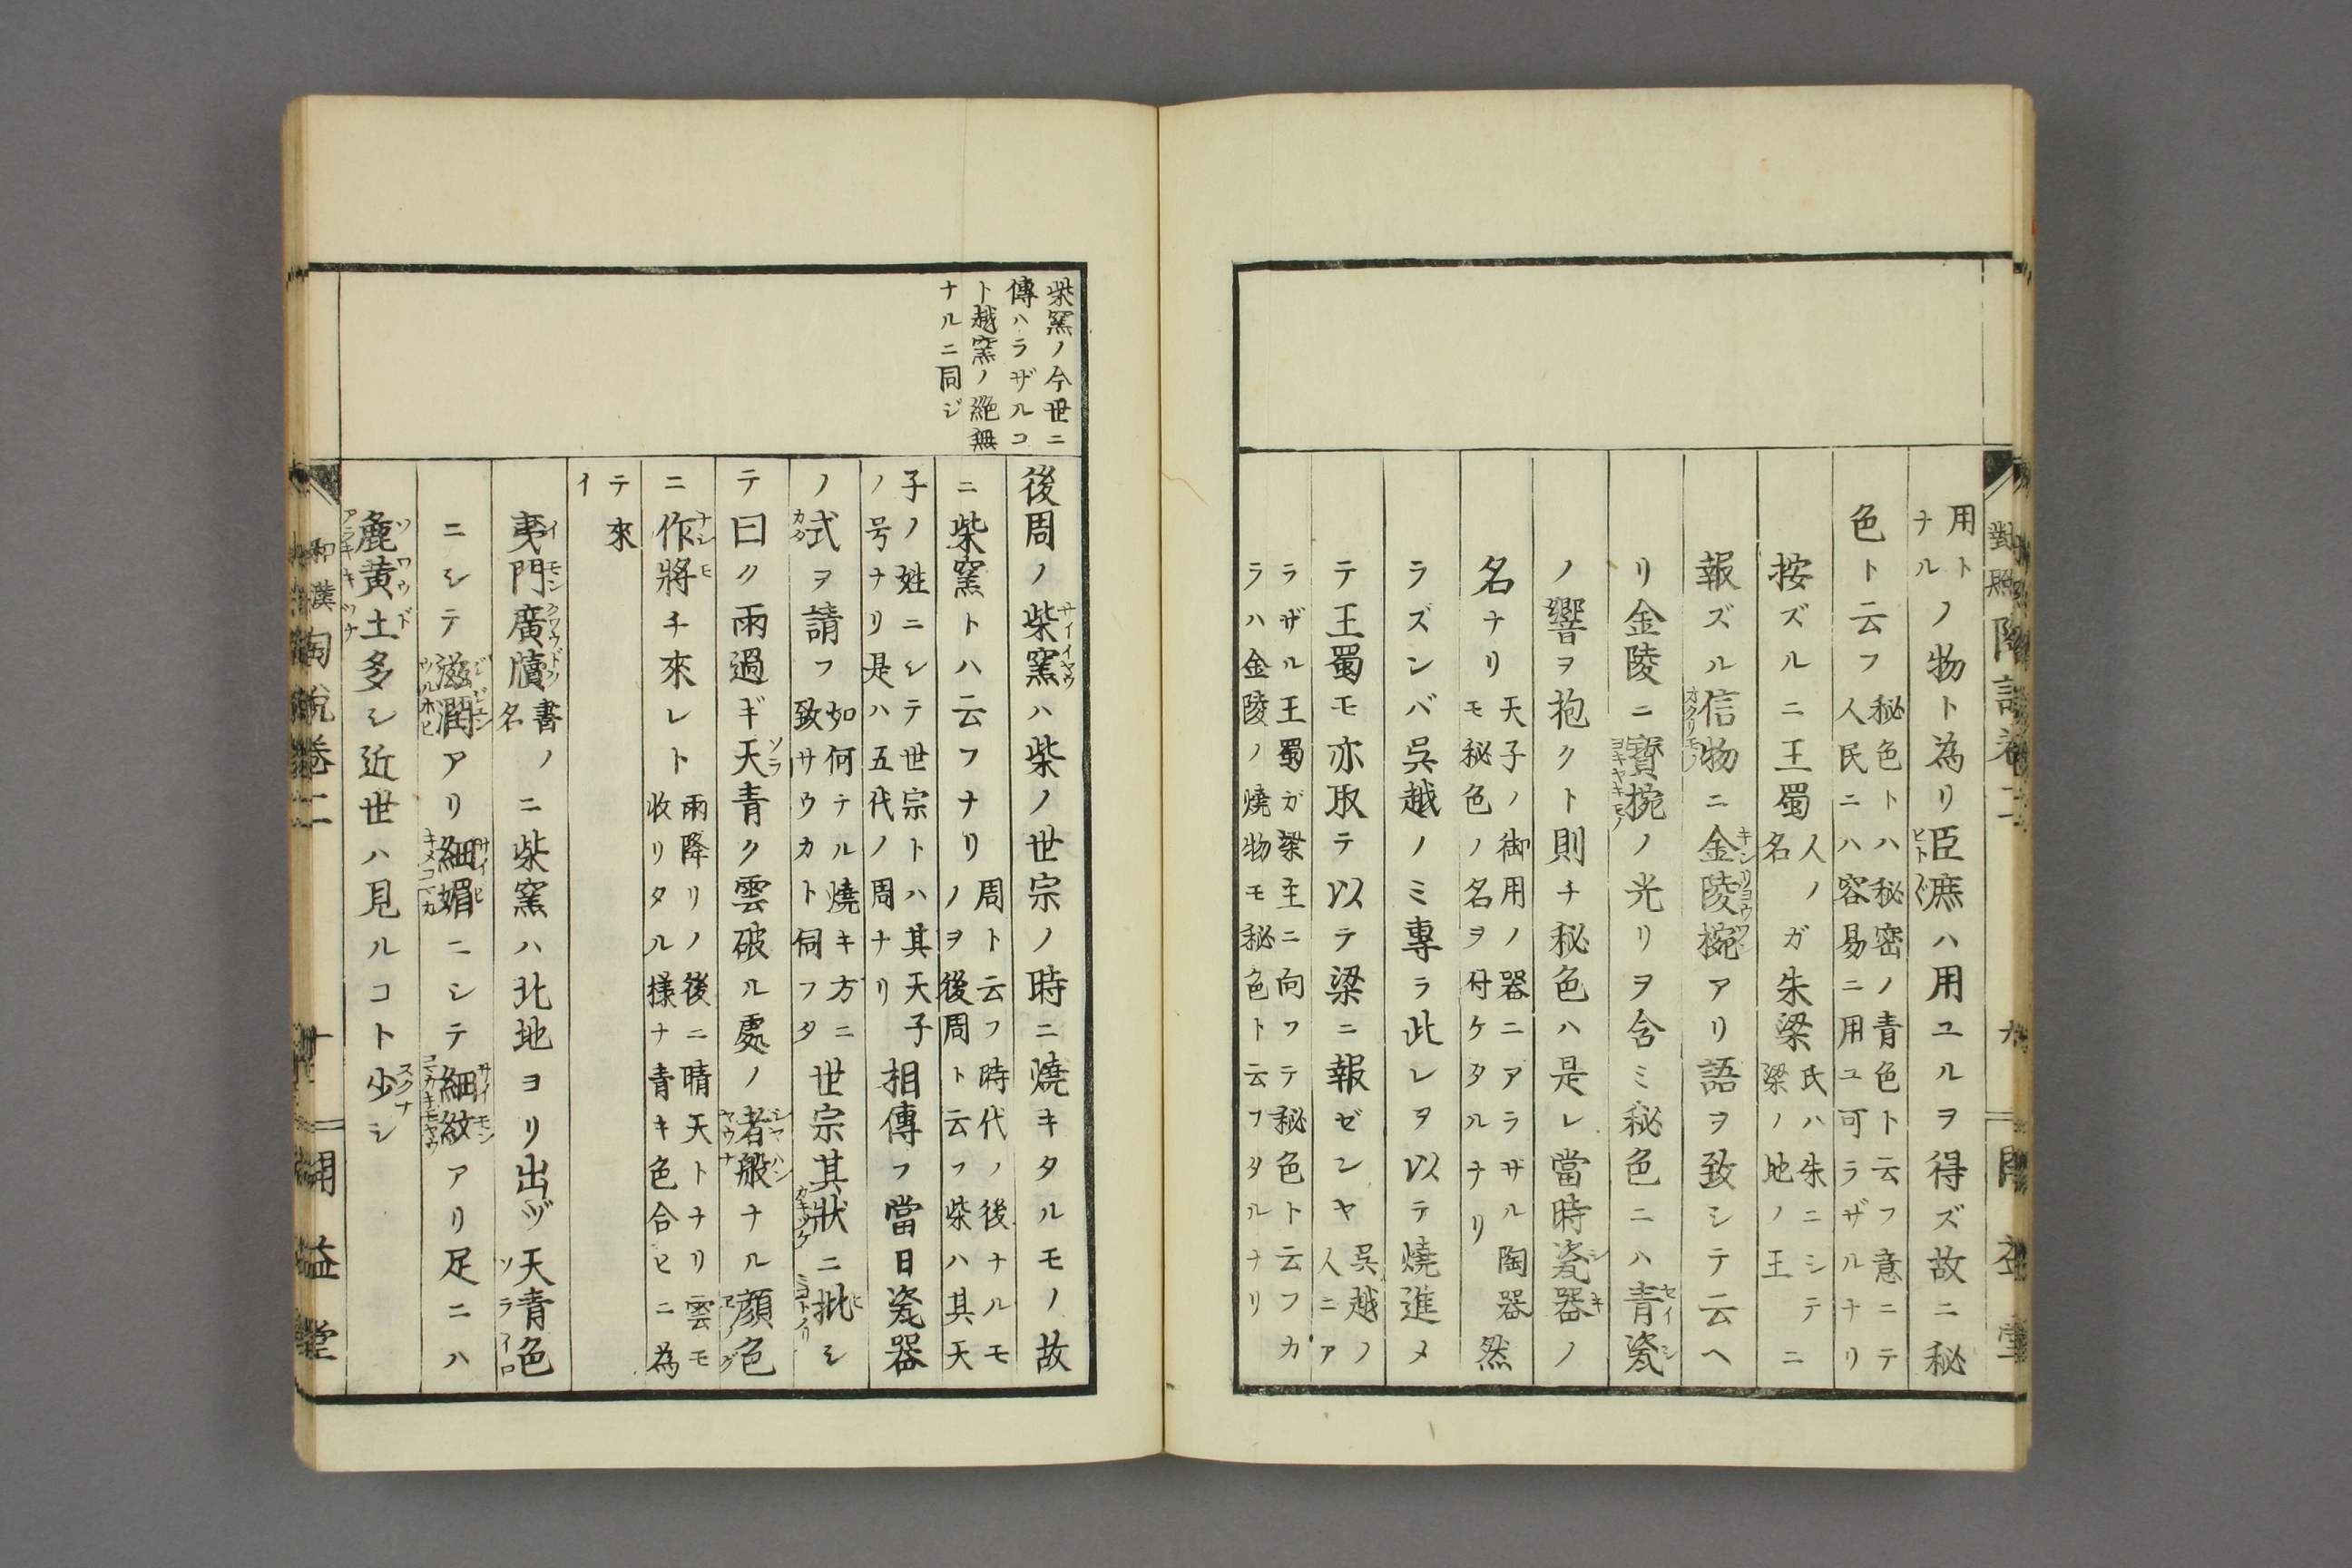 對照 陶説卷二 九 開益堂
用トナルトノ物ト為リ臣庶ハ用ユルヲ得ズ故ニ秘
色ト云フ秘色トハ秘密ノ青色ト云フ意ニテ人民ニハ容易ニ用ユ可ラザルナリ
按ズルニ王蜀人ノ名ガ朱梁氏ハ朱ニシテ梁ノ地ノ王ニ
報ズル信物ニ金陵椀アリ語ヲ致シテ云ヘ
リ金陵ニ寶椀ノ光リヲ含ミ秘色ニハ青瓷
ノ響ヲ抱クト則チ秘色ハ是レ當時瓷器ノ
名ナリ天子ノ御用ノ器ニアラザル陶器モ秘色ノ名ヲ付ケタルナリ然
ラズンバ呉越ノミ專ラ此レヲ以テ燒進メ
テ王蜀モ亦取テ以テ梁ニ報ゼンヤ呉越ノ人ニア
ラザル王蜀ガ梁主ニ向フテ秘色ト云フカラハ金陵ノ燒物モ秘色ト云フタルナリ
柴窯ノ今世ニ
傳ハラザルコ
ト越窯ノ絶無
ナルニ同ジ
後周ノ柴窯ハ柴ノ世宗ノ時ニ燒キタルモノ故
ニ柴窯トハ云フナリ周ト云フ時代ノ後ナルモノヲ後周ト云フ柴ハ其天
子ノ姓ニシテ世宗トハ其天子ノ号ナリ是ハ五代ノ周ナリ相傳フ當日瓷器
ノ式ヲ請フ如何テル燒キ方ニ致サウカト伺フタ世宗其狀ニ批シ
テ曰ク雨過ギ天青ク雲破ル處ノ者般ナル顔色
ニ作將チ來レト雨降リノ後ニ晴天トナリ雲モ收リタル様ナ青キ色合ヒニ為
テ來イ
夷門廣牘書名ノニ柴窯ハ北地ヨリ出ヅ天青色
ニシテ滋潤アリ細媚ニシテ細紋アリ足ニハ
麁黄土多シ近世ハ見ルコト少シ
和漢 陶説卷二 十 開益堂